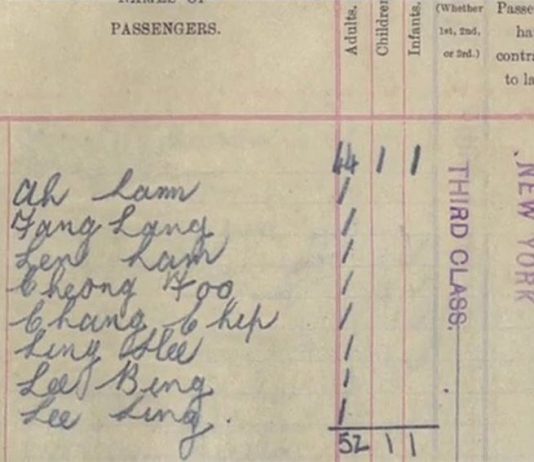 NAMES OF
PASSENGERS.
Adults.
Children
Infants.
(Whether
1st, 2nd,
or 3rd.)
Passe
ha
contra
to la
44 1 1
Ah Lam /
Fang Lang /
Len Lam /
Cheong Foo /
Chang Chip /
Ling Hee /
Lee Bing /
Lee Ling. /
52 1 1
THIRD CLASS.
NEW YORK